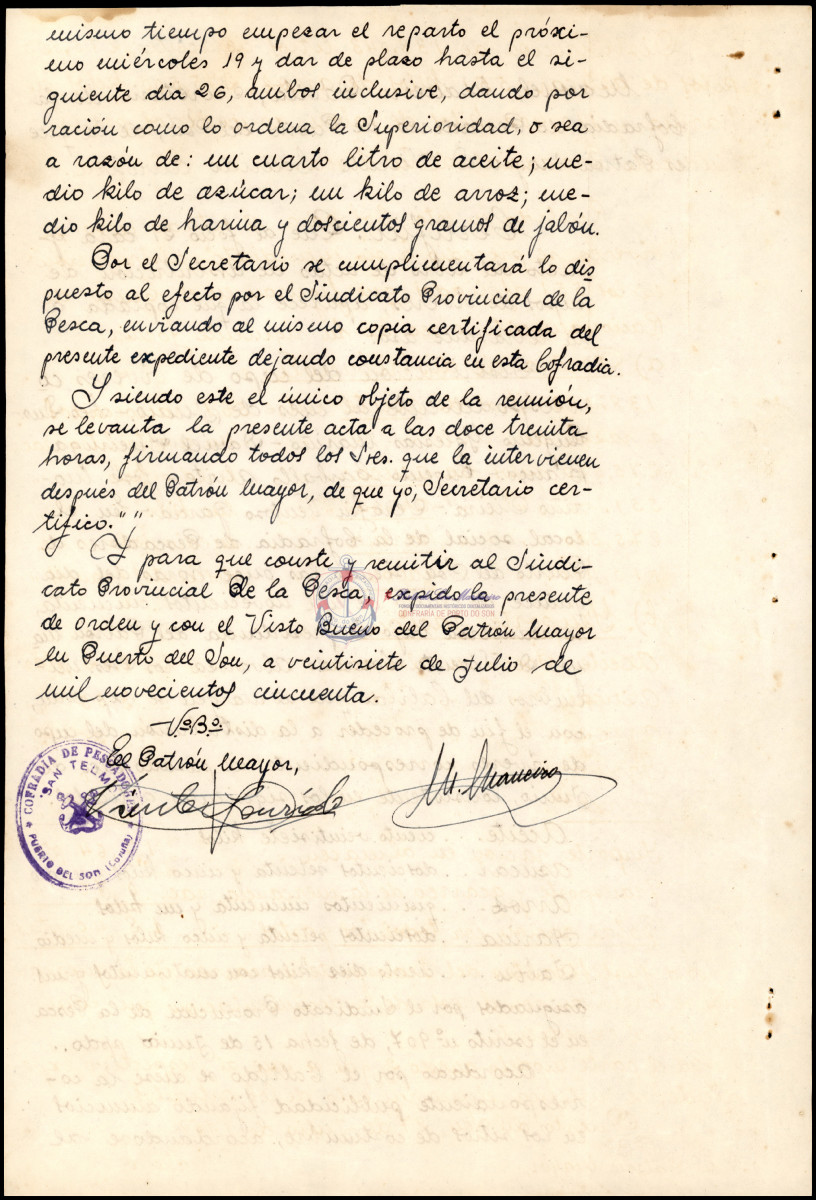 mismo tiempo empezar el reparto el próxi-
mo miércoles 19 y dar de plazo hasta el si-
guiente dia 26, ambos inclusive, dando por
ración como lo ordena la Superioridad, o sea
a razón de: un cuarto litro de aceite; me-
dio kilo de azúcar; un kilo de arroz; me-
dio kilo de harina y doscientos gramos de jabón.
Por el Secretario se cumplimentará lo dis
puesto al efecto por el Sindicato Provincial de la
Pesca, enviando al mismo copia certificada del
presente expediente dejando constancia en esta Cofradia.
Y siendo este el único objeto de la reunión,
se levanta la presente acta a las doce treinta
horas, firmando todos los Sres. que la intervienen
después del Patrón Mayor, de que yo, Secretario cer-
tifico.""
Y para que conste y remitir al Sindi-
cato Provincial de la Pesca, expido la presente
de orden y con el Visto Bueno del Patrón Mayor
en Puerto del Son, a veintisiete de Julio de
mil novecientos cincuenta.
VºBº.
El Patrón Mayor,
M. Maneiro
COFRADIA DE PESCADORES
"SAN TELMO"
PUERTO DEL SON (Coruña)
CONFRARÍA DE PORTO DO SON